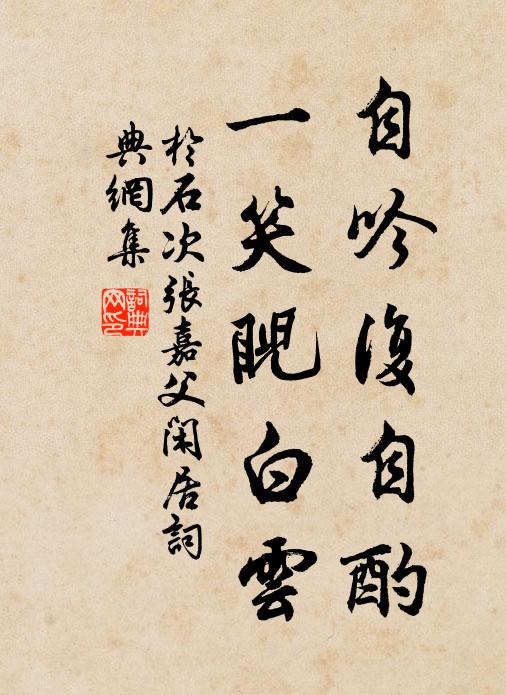 自吟復自酌
一笑睨白雲
於石次張嘉父閑居詞
典網集
詞典網印